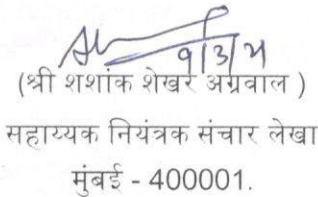 9/3/21
(श्री शशांक शेखर अग्रवाल )
सहाय्यक नियंत्रक संचार लेखा
मुंबई - 400001.